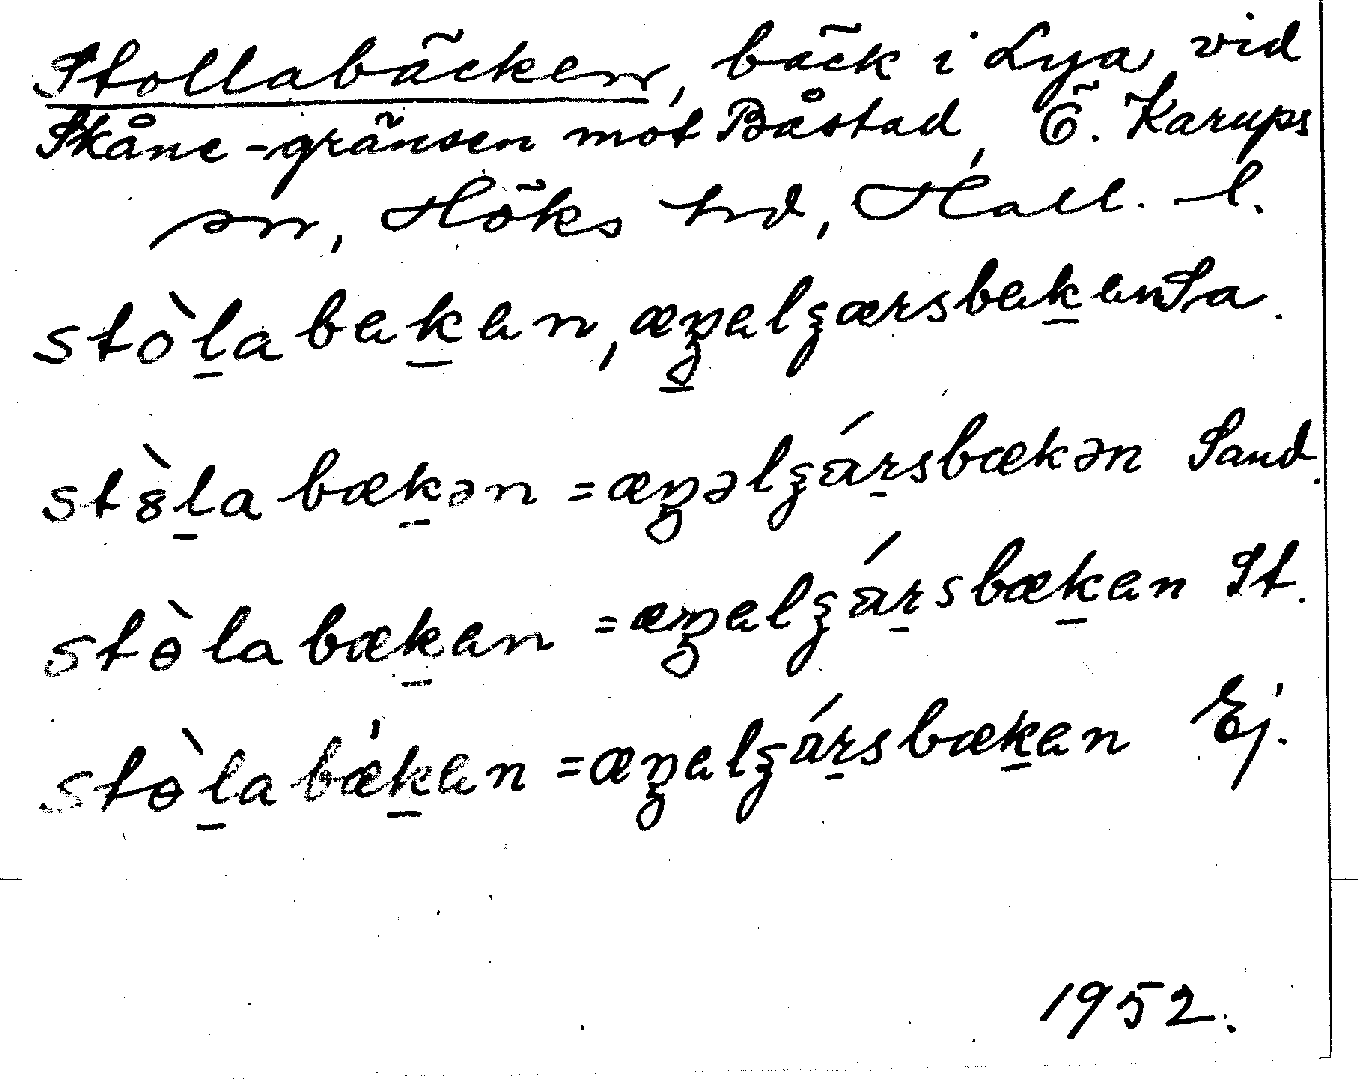 Stollabäcken, bäck i Lya vid
Skåne-gränsen mot Båstad, Ö. Karups
sn, Höks hd, Hall. l.
stòlabekan, æŋalgærsbekan Sa.
stòla bækən = æŋəlgársbækən Sand.
stòla bækan = æŋalgársbækan St.
stòla bækan = æŋalgársbækan Ej.
1952.